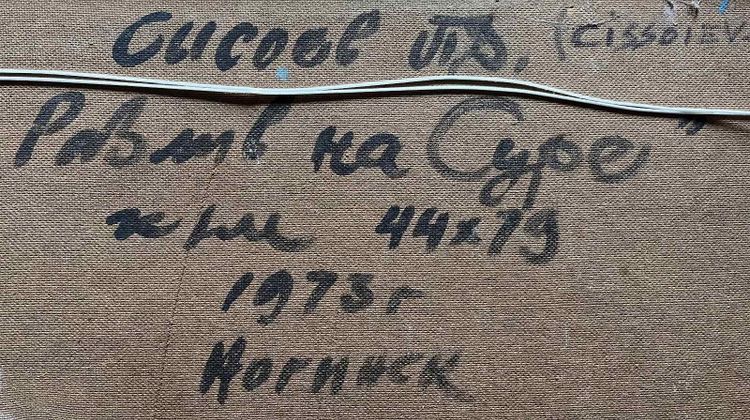 Сисоев П.Д. (CISSOIEV
Разлив на Суре"
х/м 44x79
1973г
Ногинск